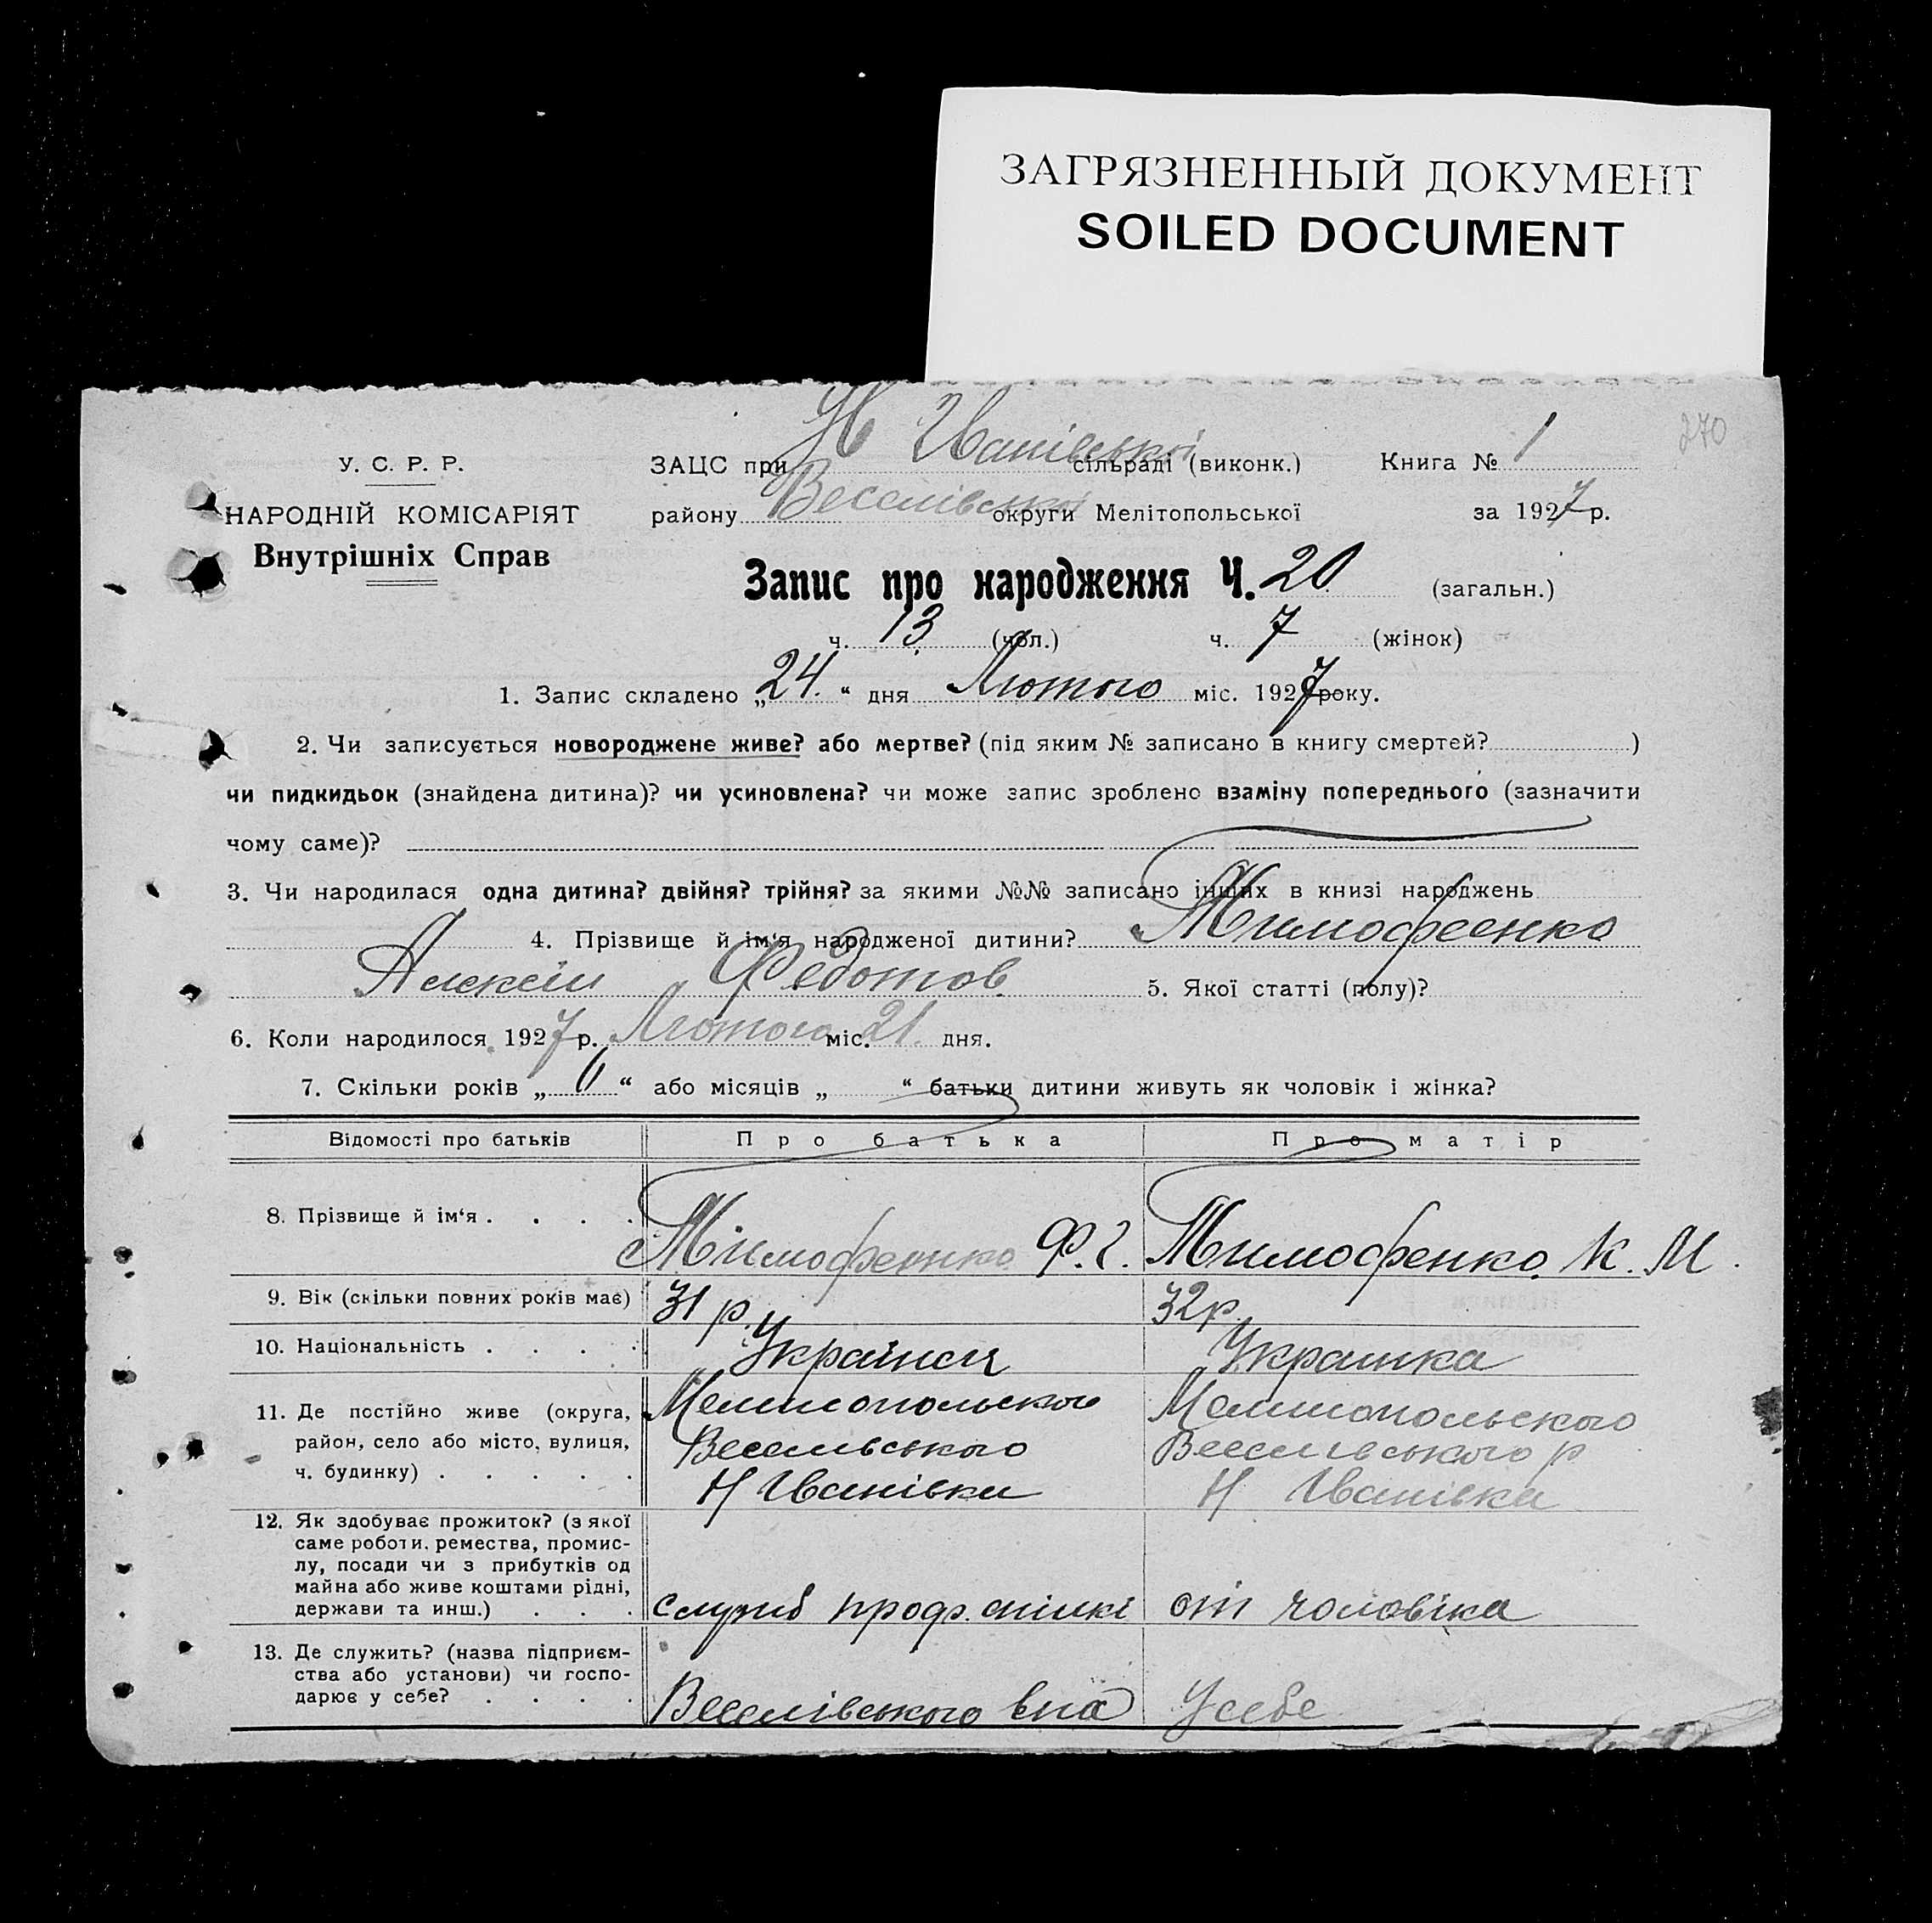 ЗАГРЯЗНЕННЫЙ ДОКУМЕНТ
SOILED DOCUMENT
270
У. С. Р. Р.
НАРОДНІЙ КОМІСАРІЯТ
Внутрішніх Справ
ЗАЦС при Н Іванівській сільраді (виконк.) Книга № 1
району Веселівської округи Мелітопольської за 1927 р.
Запис про народження Ч. 20 (загальн.)
ч. 13 (чол.) ч. 7 (жінок)
1. Запис складено „24.“ дня Лютого міс. 1927 року.
2. Чи записується новороджене живе? або мертве? (під яким № записано в книгу смертей? )
чи пидкидьок (знайдена дитина)? чи усиновлена? чи може запис зроблено взаміну попереднього (зазначити
чому саме)?
3. Чи народилася одна дитина? двійня? трійня? за якими №№ записано інших в книзі народжень
4. Прізвище й ім‘я народженої дитини? Тимофеенко
Алексій Федотов 5. Якої статті (полу)?
6. Коли народилося 1927 р. Лютого міс. 21. дня.
7. Скільки років „ 11 “ або місяців „ “ батьки дитини живуть як чоловік і жінка?
Відомості про батьків Про батька Про матір
8. Прізвище й ім‘я . . . . Тимофеенко Ф. Г. Тимофенко К. М.
9. Вік (скільки повних років має) 31 р. 32 р.
10. Національність . . . . Українец Украинка
11. Де постійно живе (округа,
район, село або місто, вулиця,
ч. будинку) . . . . .
Мелитопольского Мелитопольского
Веселивського Веселивського р
Н Іванівка Н Іванівка
12. Як здобуває прожиток? (з якої
саме роботи, ремества, промис-
лу, посади чи з прибутків од
майна або живе коштами рідні,
держави та инш.) . . .
проф. спілкі от чоловіка
13. Де служить? (назва підприєм-
ства або установи) чи госпо-
дарює у себе? . . . .
Веселівського У себе